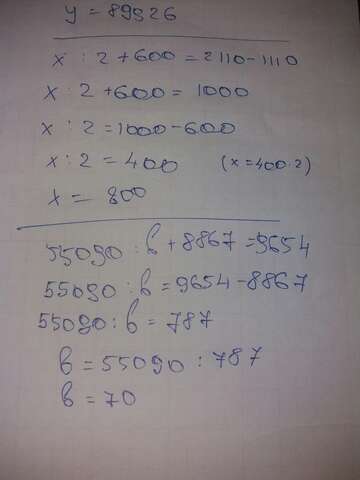 y = 89526
x : 2 + 600 = 2110 - 1110
x : 2 + 600 = 1000
x : 2 = 1000 - 600
x : 2 = 400 (x = 400 · 2)
x = 800
55090 : b + 8867 = 9654
55090 : b = 9654 - 8867
55090 : b = 787
b = 55090 : 787
b = 70